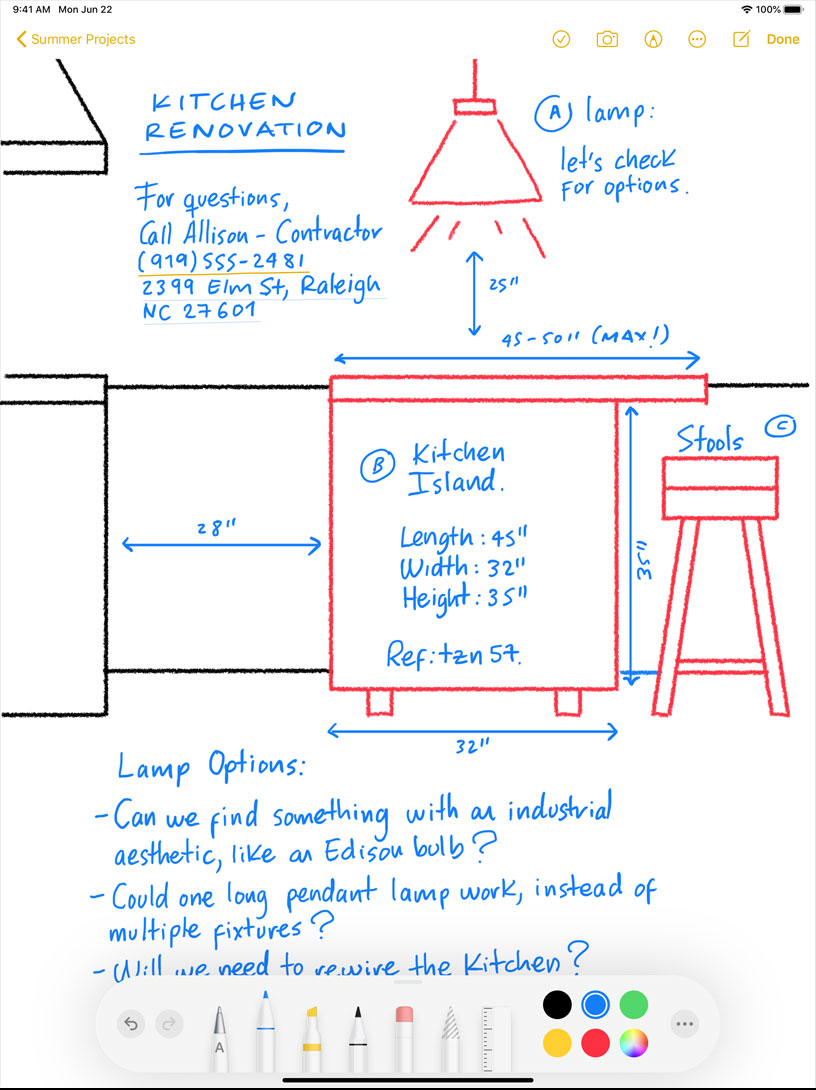 9:41 AM Mon Jun 22
100%
Summer Projects
Done
KITCHEN
RENOVATION
For questions,
Call Allison - Contractor
(919)555-2481
2399 Elm St, Raleigh
NC 27601
A lamp:
let's check
For options.
25"
45-50" (MAX!)
Stools C
B Kitchen
Island.
Length: 45"
Width: 32"
Height: 35"
Ref: tzn 57.
28"
35"
32"
Lamp Options:
- Can we find something with an industrial
aesthetic, like an Edison bulb?
- Could one long pendant lamp work, instead of
multiple fixtures?
- Will we need to rewire the Kitchen?
A